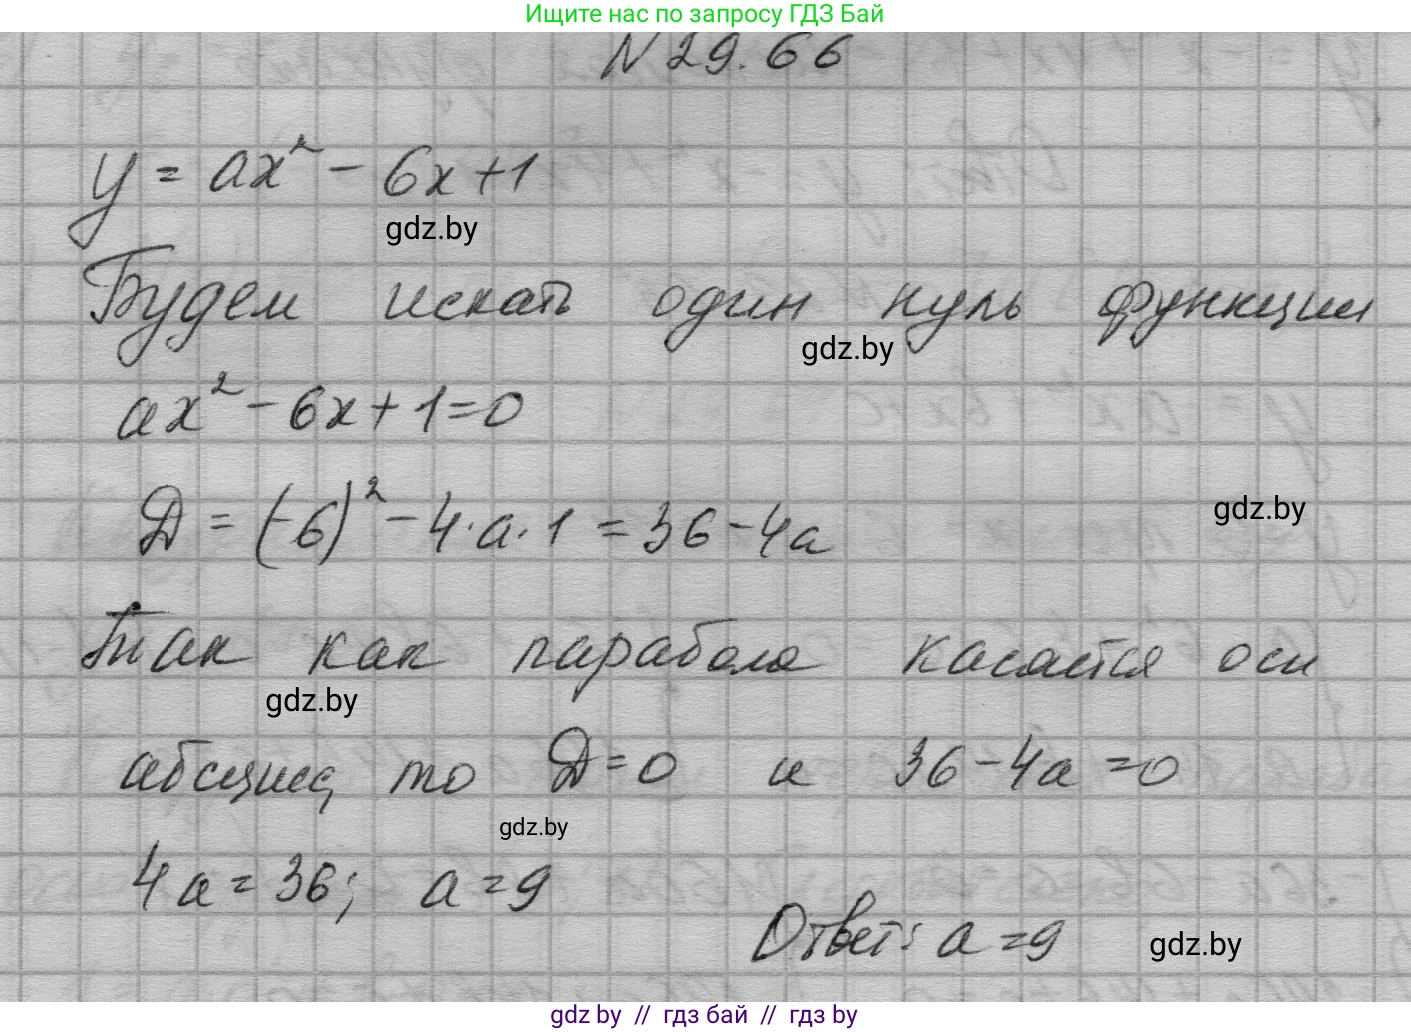 Ищите нас по запросу ГДЗ Бай
N 29.66
y = ax² - 6x + 1
gdz.by
Будем искать один нуль функции
gdz.by
ax² - 6x + 1 = 0
gdz.by
Д = (-6)² - 4·a·1 = 36 - 4a
Так как парабола касается оси
gdz.by
абсцисс, то Д = 0 и 36 - 4a = 0
gdz.by
4a = 36; a = 9
Ответ: a = 9
gdz.by
gdz by // гдз бай // гдз by